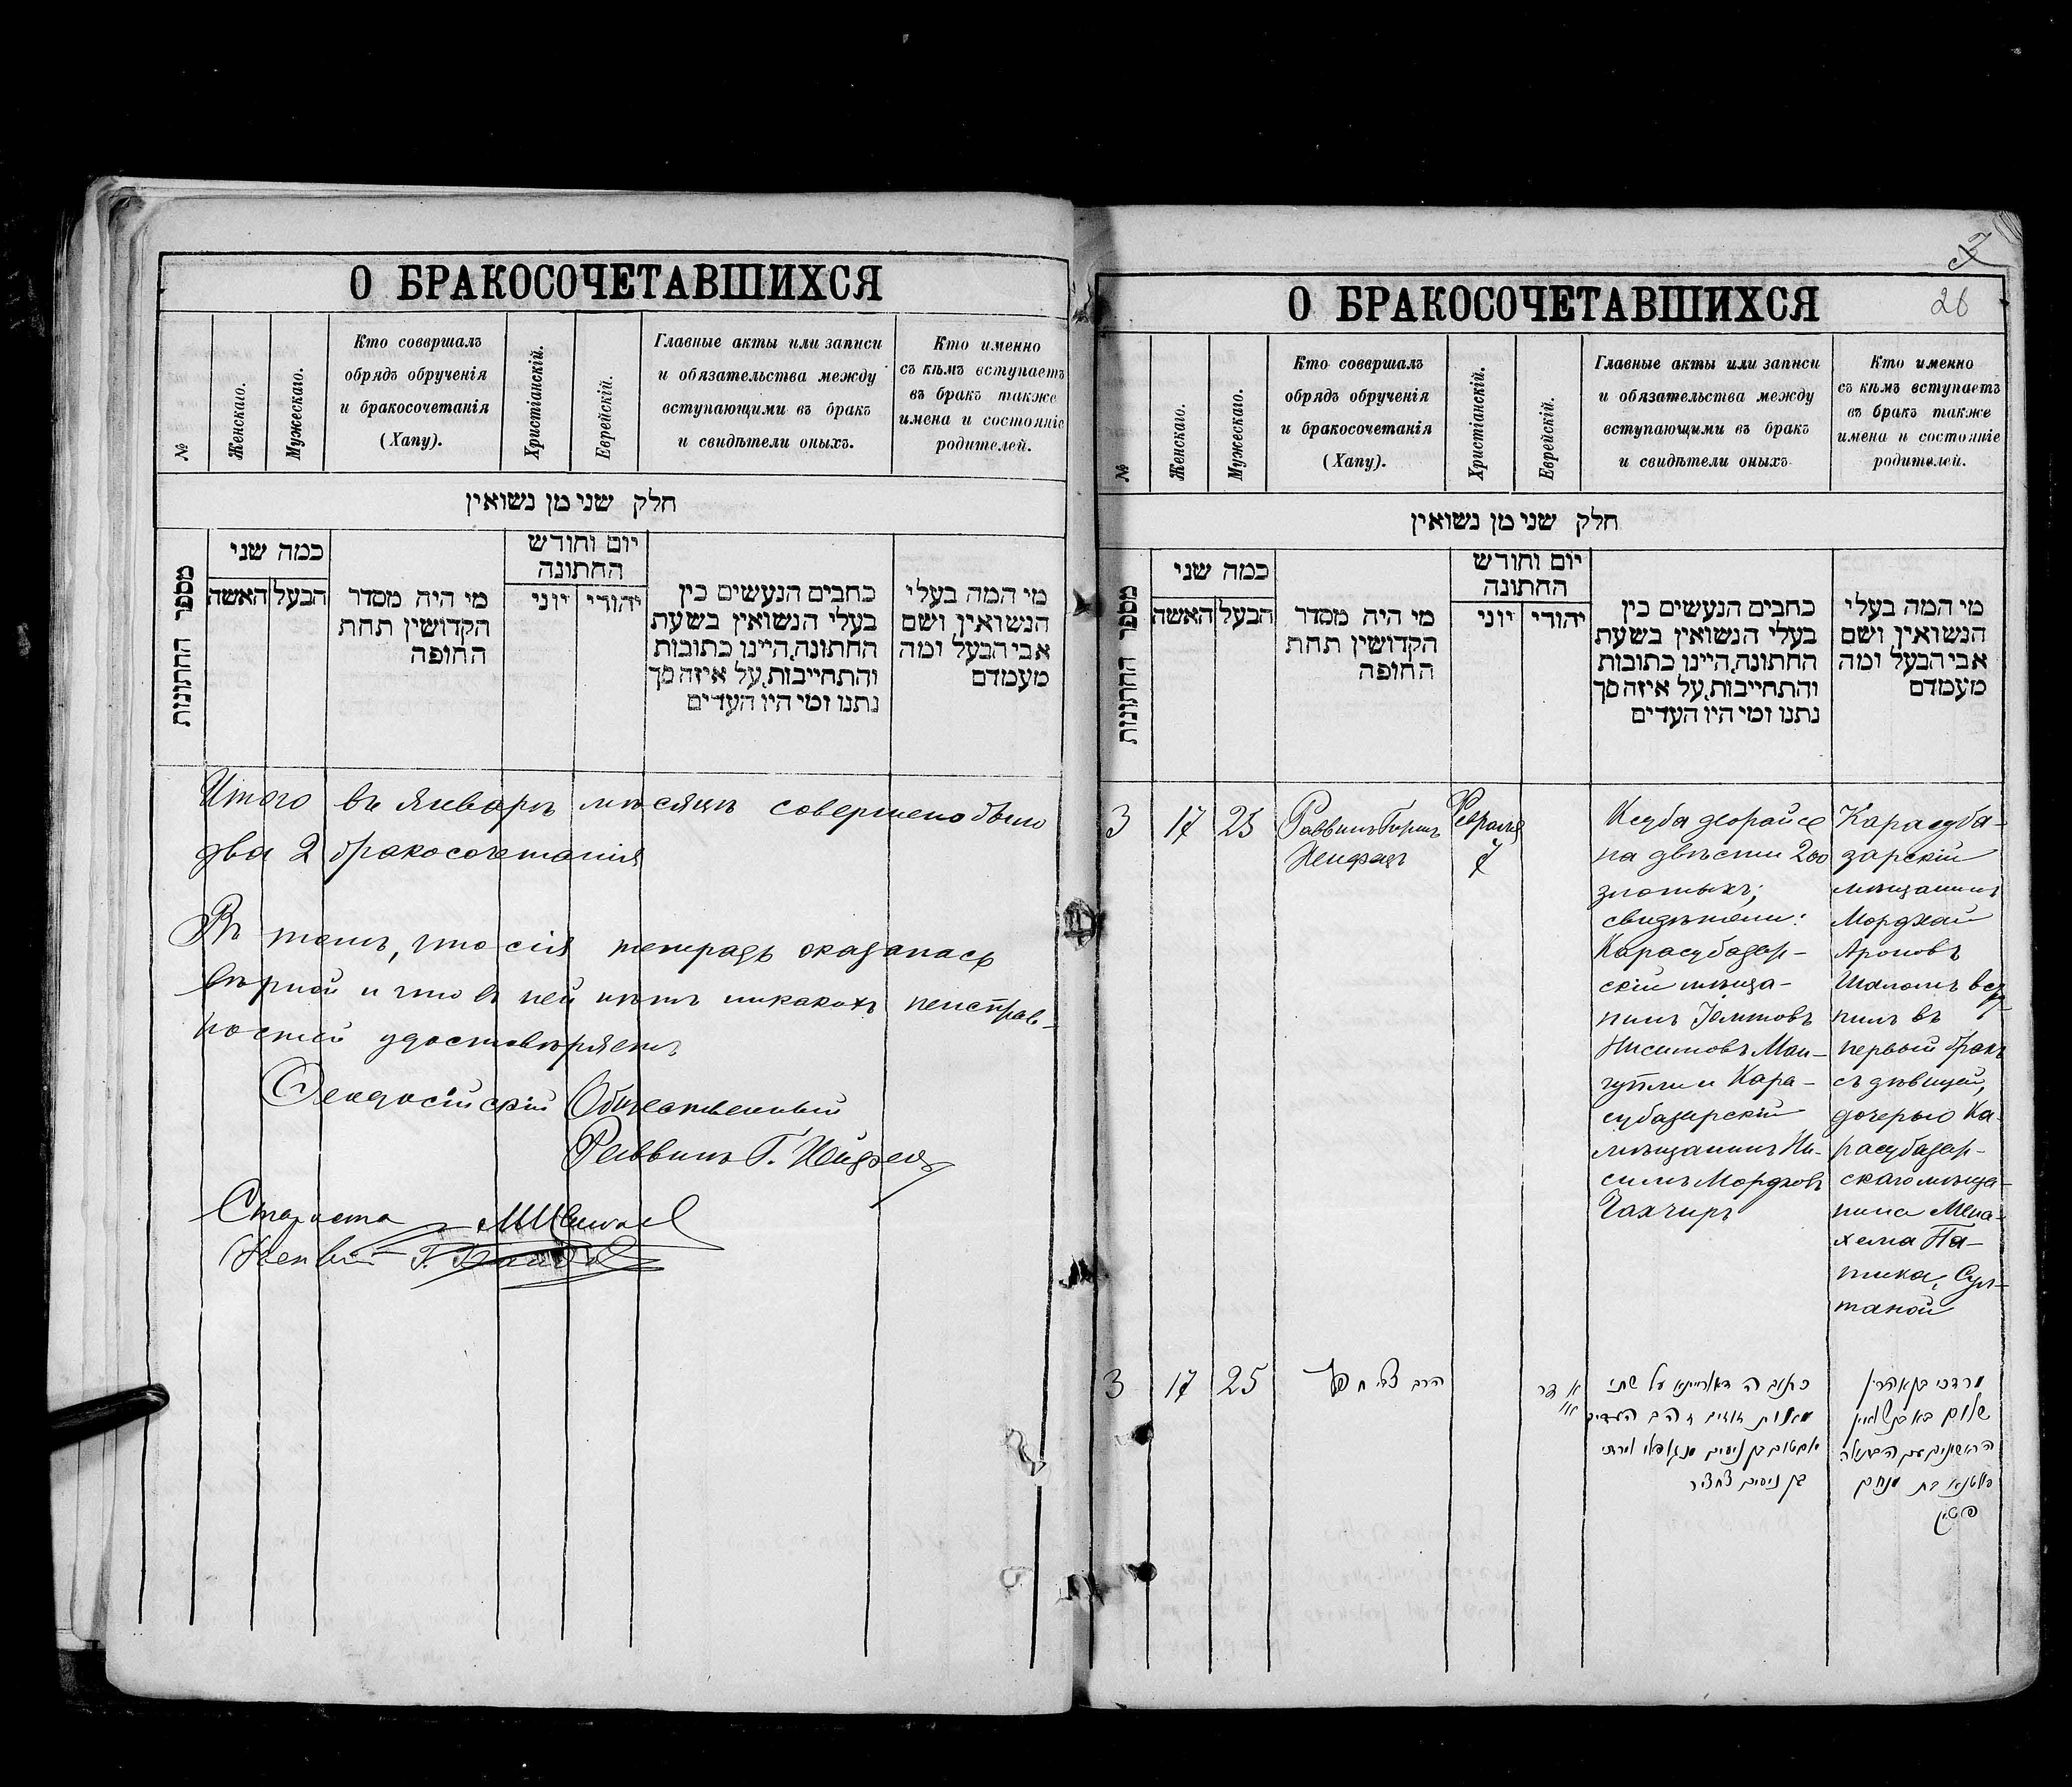 О БРАКОСОЧЕТАВШИХСЯ
№
Женскаго.
Мужескаго.
Кто совершалъ
обрядъ обрученія
и бракосочетанія
(Хапу).
Христіанскій.
Еврейскій.
Главные акты или записи
и обязательства между
вступающими въ бракъ
и свидѣтели оныхъ.
Кто именно
съ кѣмъ вступаетъ
въ бракъ также
имена и состояніе
родителей.
חלק שני מן נשואין
מספר החתונות
כמה שני
האשה
הבעל
מי היה מסדר
הקדושין תחת
החופה
יום וחודש
החתונה
יוני
יהודי
כחבים הנעשים בין
בעלי הנשואין בשעת
החתונה,היינו כתובות
והתחייבות,על איזה סך
נתנו ומי היו העדים
מי המה בעלי
הנשואין ושם
אבי הבעל ומה
מעמדם
Итого въ Январѣ мѣсяцѣ совершено было
два 2 бракосочетанія
Въ томъ, что сія тетрадь оказалась
вѣрной и что въ ней нѣтъ никакихъ неисправ-
ностей удостовѣряетъ
Ѳеодосійскій Общественный
Раввинъ Г. Нейфельд
Староста
О БРАКОСОЧЕТАВШИХСЯ
26
№
Женскаго.
Мужескаго.
Кто совершалъ
обрядъ обрученія
и бракосочетанія
(Хапу).
Христіанскій.
Еврейскій.
Главные акты или записи
и обязательства между
вступающими въ бракъ
и свидѣтели оныхъ
Кто именно
съ кѣмъ вступаетъ
въ бракъ также
имена и состояніе
родителей.
חלק שני מן נשואין
מספר החתונות
כמה שני
האשה
הבעל
מי היה מסדר
הקדושין תחת
החופה
יום וחודש
החתונה
יוני
יהודי
כחבים הנעשים בין
בעלי הנשואין בשעת
החתונה,היינו כתובות
והתחייבות,על איזה סך
נתנו ומי היו העדים
מי המה בעלי
הנשואין ושם
אבי הבעל ומה
מעמדם
3
17
25
Раввинъ
Февраля
7
на двѣсти 200
злотыхъ;
свидѣтели:
Карасубазар-
скій мѣща-
нинъ
Нисимовъ Ман-
гупли и Кара-
субазарскій
мѣщанинъ Ни-
симъ Мордковъ
Чахчиръ
Карасуба-
зарскій
мѣщанинъ
Мордхай
Ароновъ
Шаломъ всту-
пилъ въ
первый бракъ
съ дѣвицей,
дочерью Ка-
расубазар-
скаго мѣща-
нина Мена-
хема Па-
тика, Сул-
таной
3
17
25
הרב
א
אדר
כתובה דאורייתא על שתי
מאות זוזים והם העדים
בן ניסים
בן ניסים
מרדכי
שלום בא בנשואין
הראשונים עם הבתולה
סולטנא בת מנחם